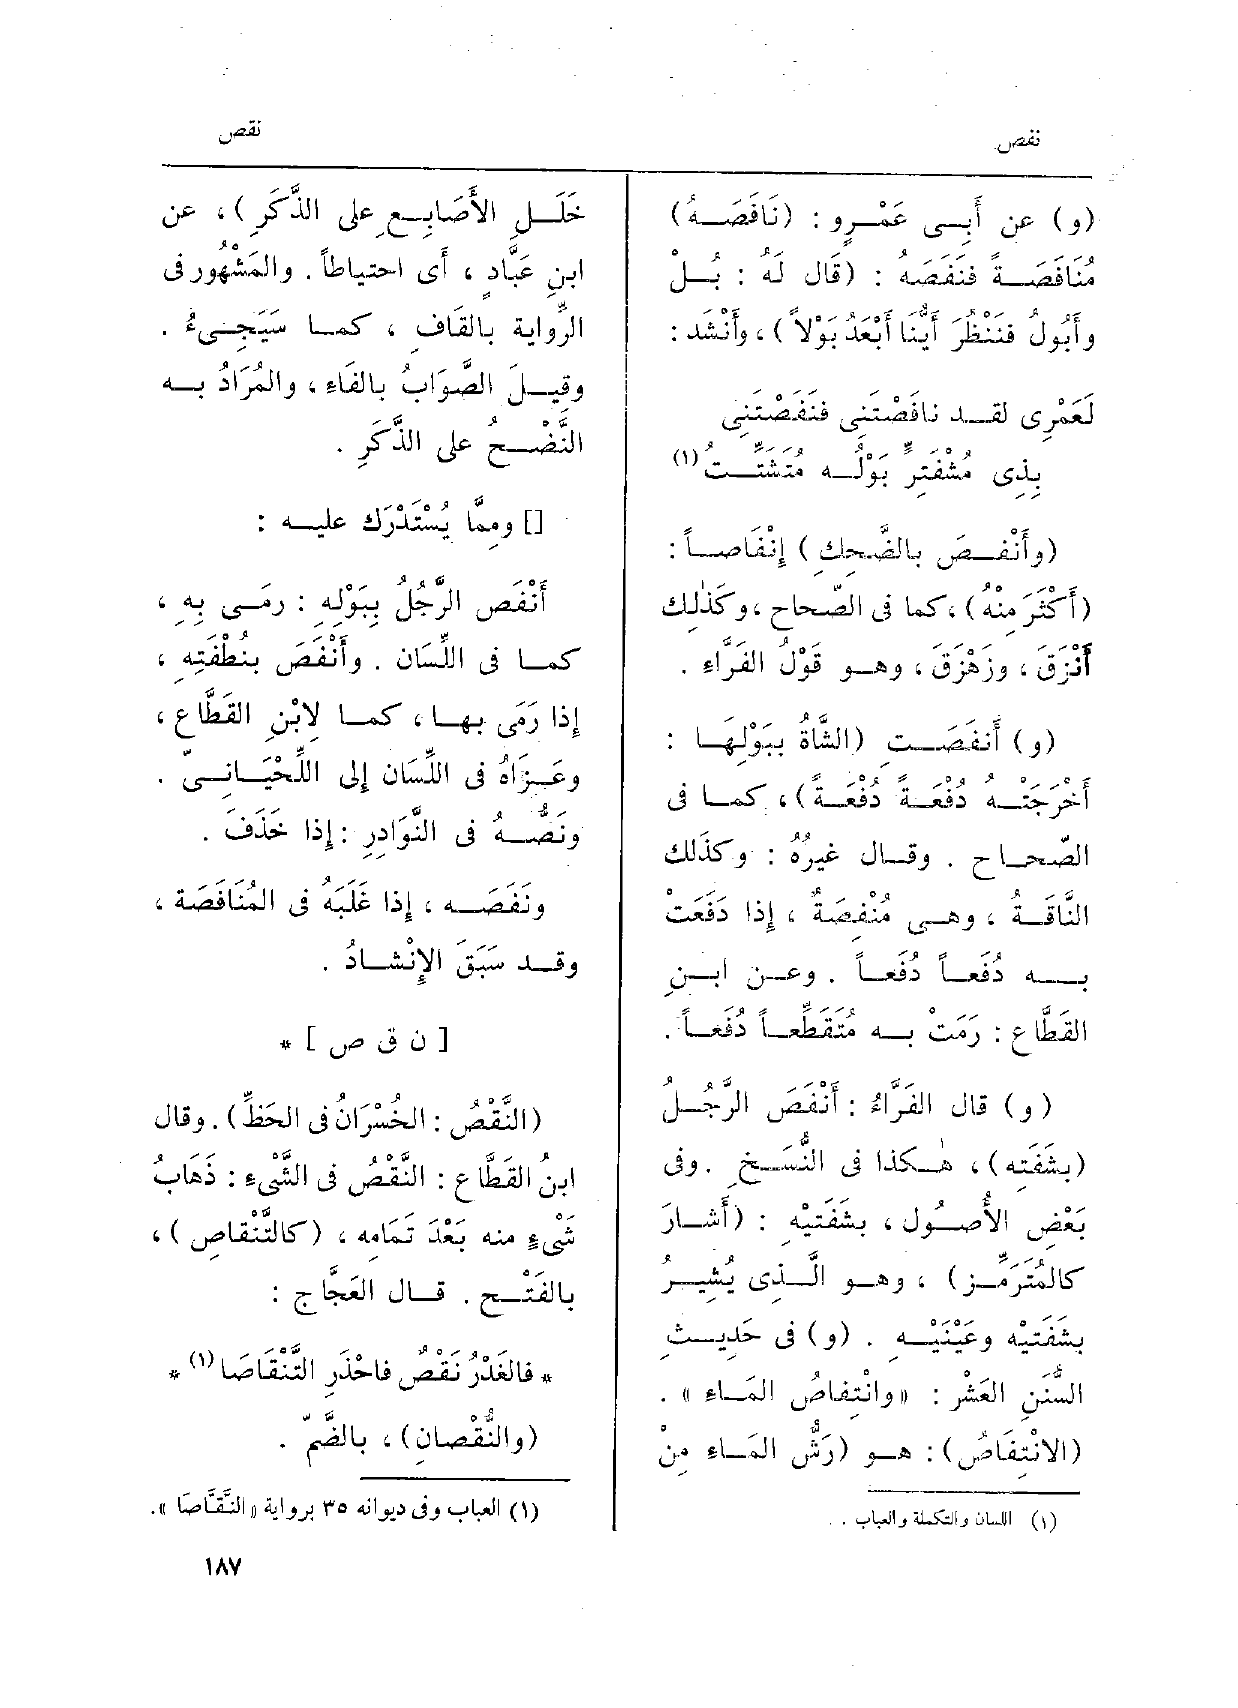 نفص
نقص
(و) عن أَبِــى عَمْــرٍو : (نَافَصَــهُ)
مُنَافَصَــةً فنَفَصَه : (قَال لَهُ : بُــلْ
وأَبُولُ فنَنْظُرَ أَيُّنَا أَبْعَدُ بَوْلاً)، وأَنْشد :
لَعَمْرِى لقــد نافَصْتَنى فنَفَصْتَنِى
بِذِى مُشْفَتِرٍّ بَوْلُــه مُتَشَتِّــتُ(١)
(وأَنْفَــصَ بالضَّحِك) إِنْفَاصــاً :
(أَكْثَرَ مِنْهُ)، كما فى الصّحاح، وكَذٰلِك
أَنْزَقَ، وزَهْزَقَ، وهــو قَوْلُ الفَرَّاءِ .
(و) أَنفَصَــتِ (الشَّاةُ بِبَوْلِهَـا :
أَخْرَجَتْــهُ دُفْعَــةً دُفْعَــةً)، كمــا فى
الصّحــاح . وقــال غيرُهُ : وكَذٰلك
النَّاقَــةُ، وهــى مُنْفِصَةٌ، إِذا دَفَعَتْ
بــه دُفَعــاً دُفَعــاً . وعــن ابــنِ
القَطَّاع : رَمَتْ بــه مُتَقَطِّعــاً دُفَعــاً .
(و) قال الفَرَّاءُ : أَنْفَصَ الرَّجُــلُ
(بشَفَتِه)، هٰــكذا فى النُّسَــخِ . وفى
بَعْضِ الأُصــُول، بشَفَتَيْه : (أَشــارَ
كالمُتَرَمِّــز)، وهــو الَّــذى يُشِيــرُ
بشَفَتَيْه وعَيْنَيْــه . (و) فى حَدِيــث
السُّنَنِ العَشْرِ : «وانْتِفاصُ المَــاءِ» .
(الانْتِفَاصُ): هــو (رَشُّ المَــاءِ مِنْ
(١) اللسان والتكملة والعباب .
خَلَــلِ الأَصَابِــعِ على الذَّكَرِ)، عن
ابنِ عَبَّادٍ، أَى احتياطاً . والمَشْهُور فى
الرِّواية بالقَافِ، كمــا سَيَجِــىءُ .
وقيــلَ الصَّوَابُ بالفَاء، والمُرَادُ بــه
النَّضْــحُ على الذَّكَرِ .
[] وممَّا يُسْتَدْرَك عليــه :
أَنْفَص الرَّجُلُ بِبَوْلِهِ : رمَــى بِهِ،
كمــا فى اللِّسَان . وأَنْفَصَ بنُطْفَتِهِ،
إِذا رَمَى بهــا، كمــا لابْنِ القَطَّاع،
وعَــزَاهُ فى اللِّسَان إِلى اللِّحْيَــانِــىّ .
ونَصُّــهُ فى النَّوَادِرِ : إِذا خَذَفَ .
ونَفَصَــه، إِذا غَلَبَهُ فى المُنَافَصَة،
وقــد سَبَقَ الإِنْشــادُ .
[ ن ق ص ] *
(النَّقْصُ : الخُسْرَانُ فى الحَظِّ). وقال
ابنُ القَطَّاع : النَّقْصُ فى الشَّىءِ : ذَهَابُ
شَىْءٍ منه بَعْدَ تَمَامِه، (كالتَّنْقاصِ)،
بالفَتْــح . قــال العَجَّاج :
* فالغَدْرُ نَقْصٌ فاحْذَرِ التَّنْقَاصَا(١) *
(والنُّقْصانِ)، بالضَّمّ .
(١) العباب وفى ديوانه ٣٥ برواية «النَّقَّاصَا».
١٨٧